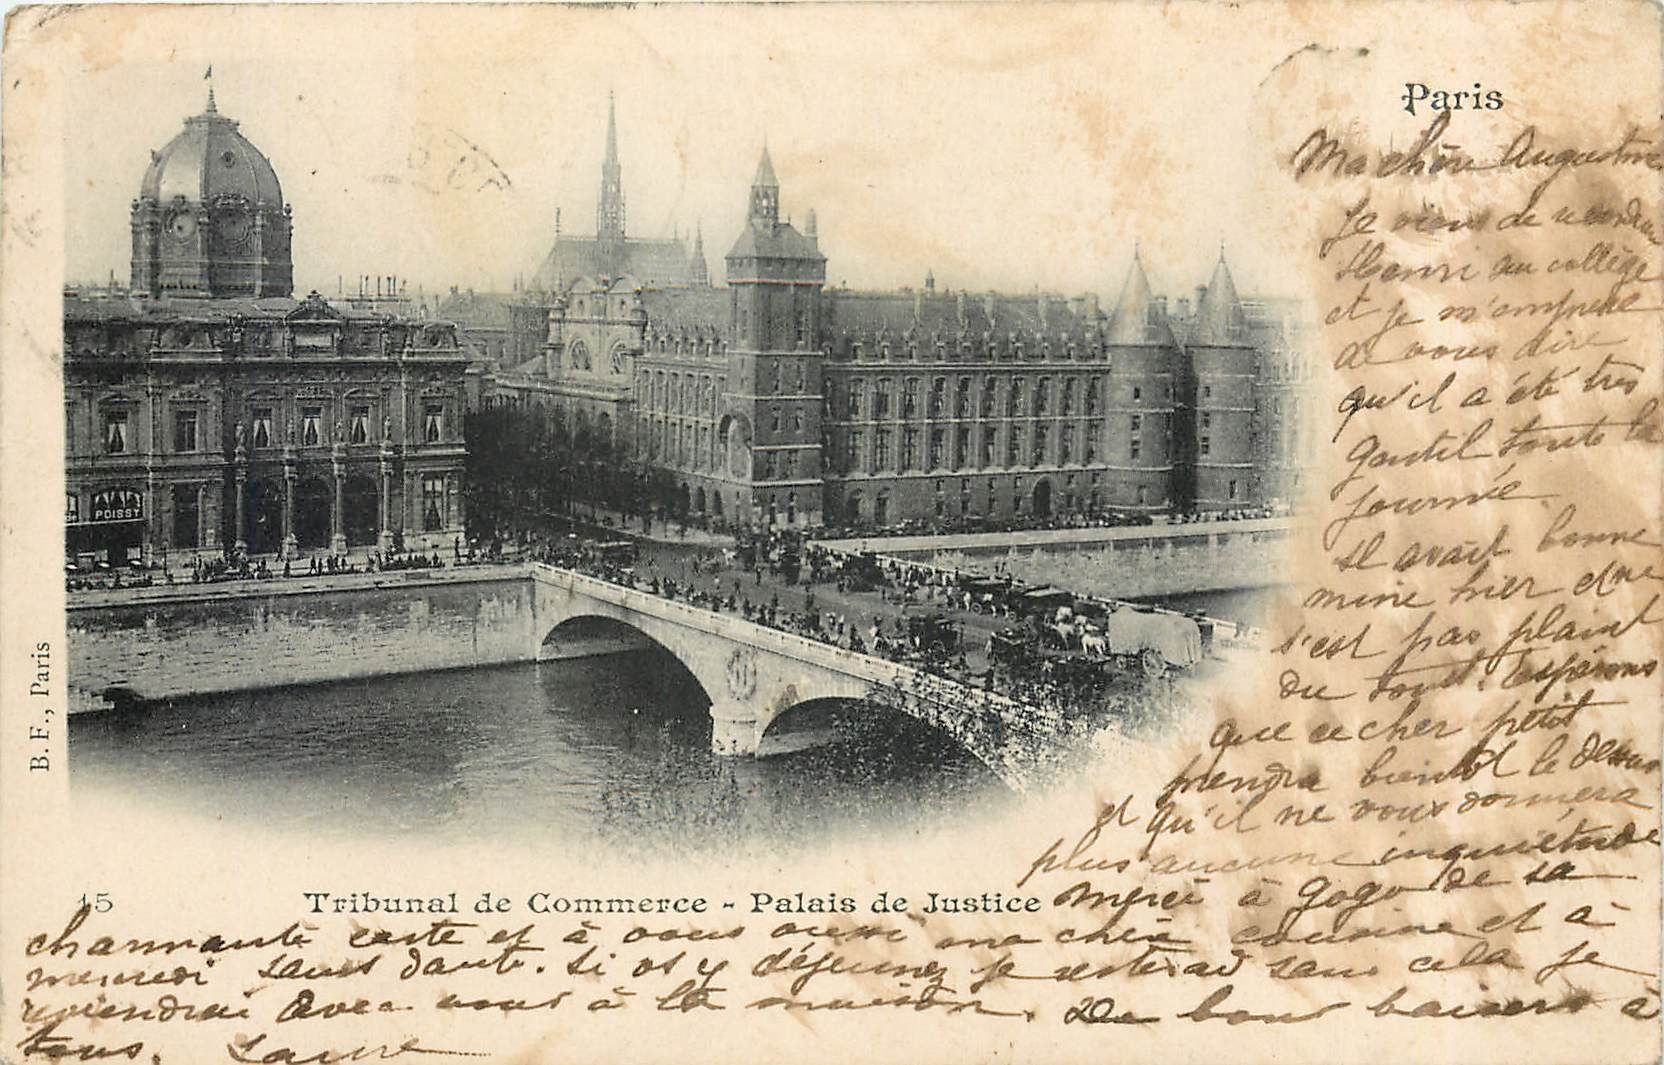 Paris
Ma chère Augustine
Je viens de
Henri au collège
et je m'empresse
de vous dire
qu'il a été très
gentil toute la
journée
Il avait bonne
mine hier et ne
s'est pas plaint
du tout. Espérons
que ce cher petit
prendra bientôt le dessus
et qu'il ne vous donnera
plus aucune inquiétude
Merci à Gogo de sa
charmante carte et à vous aussi ma chère cousine et à
mercredi sans doute. Si y déjeunez je sans cela je
reviendrai avec vous à la maison. De bons baisers à
tous.
POISSY
B. F., Paris
15
Tribunal de Commerce - Palais de Justice